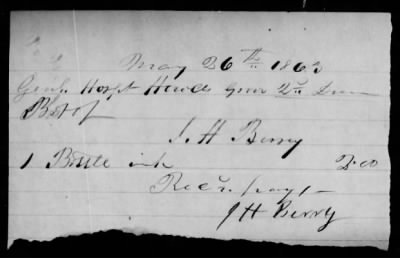 May 26th 1863
Genl Hospt Howards Grove 2nd Div
Bot of
J. H. Berry
1 Bottle ink 2.00
Recd payt
J H Berry